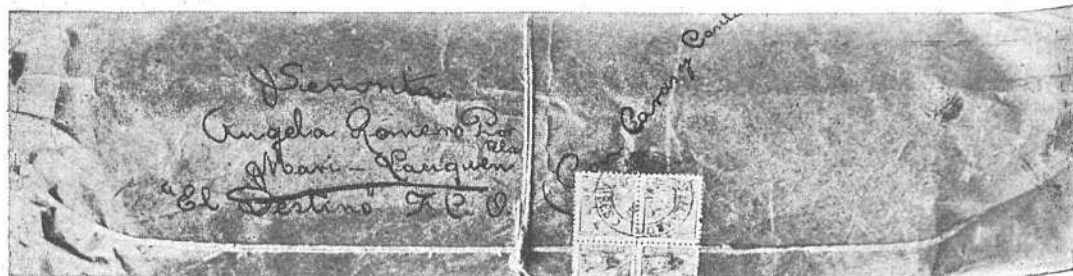 Señorita
Angela Romero
Mari-Lauquen
"El Destino" F. C. O.
Caras y Caretas